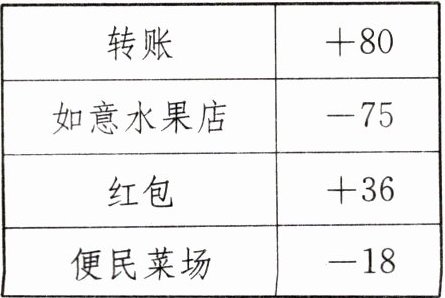 转账 +80
如意水果店 -75
红包 +36
便民菜场 -18